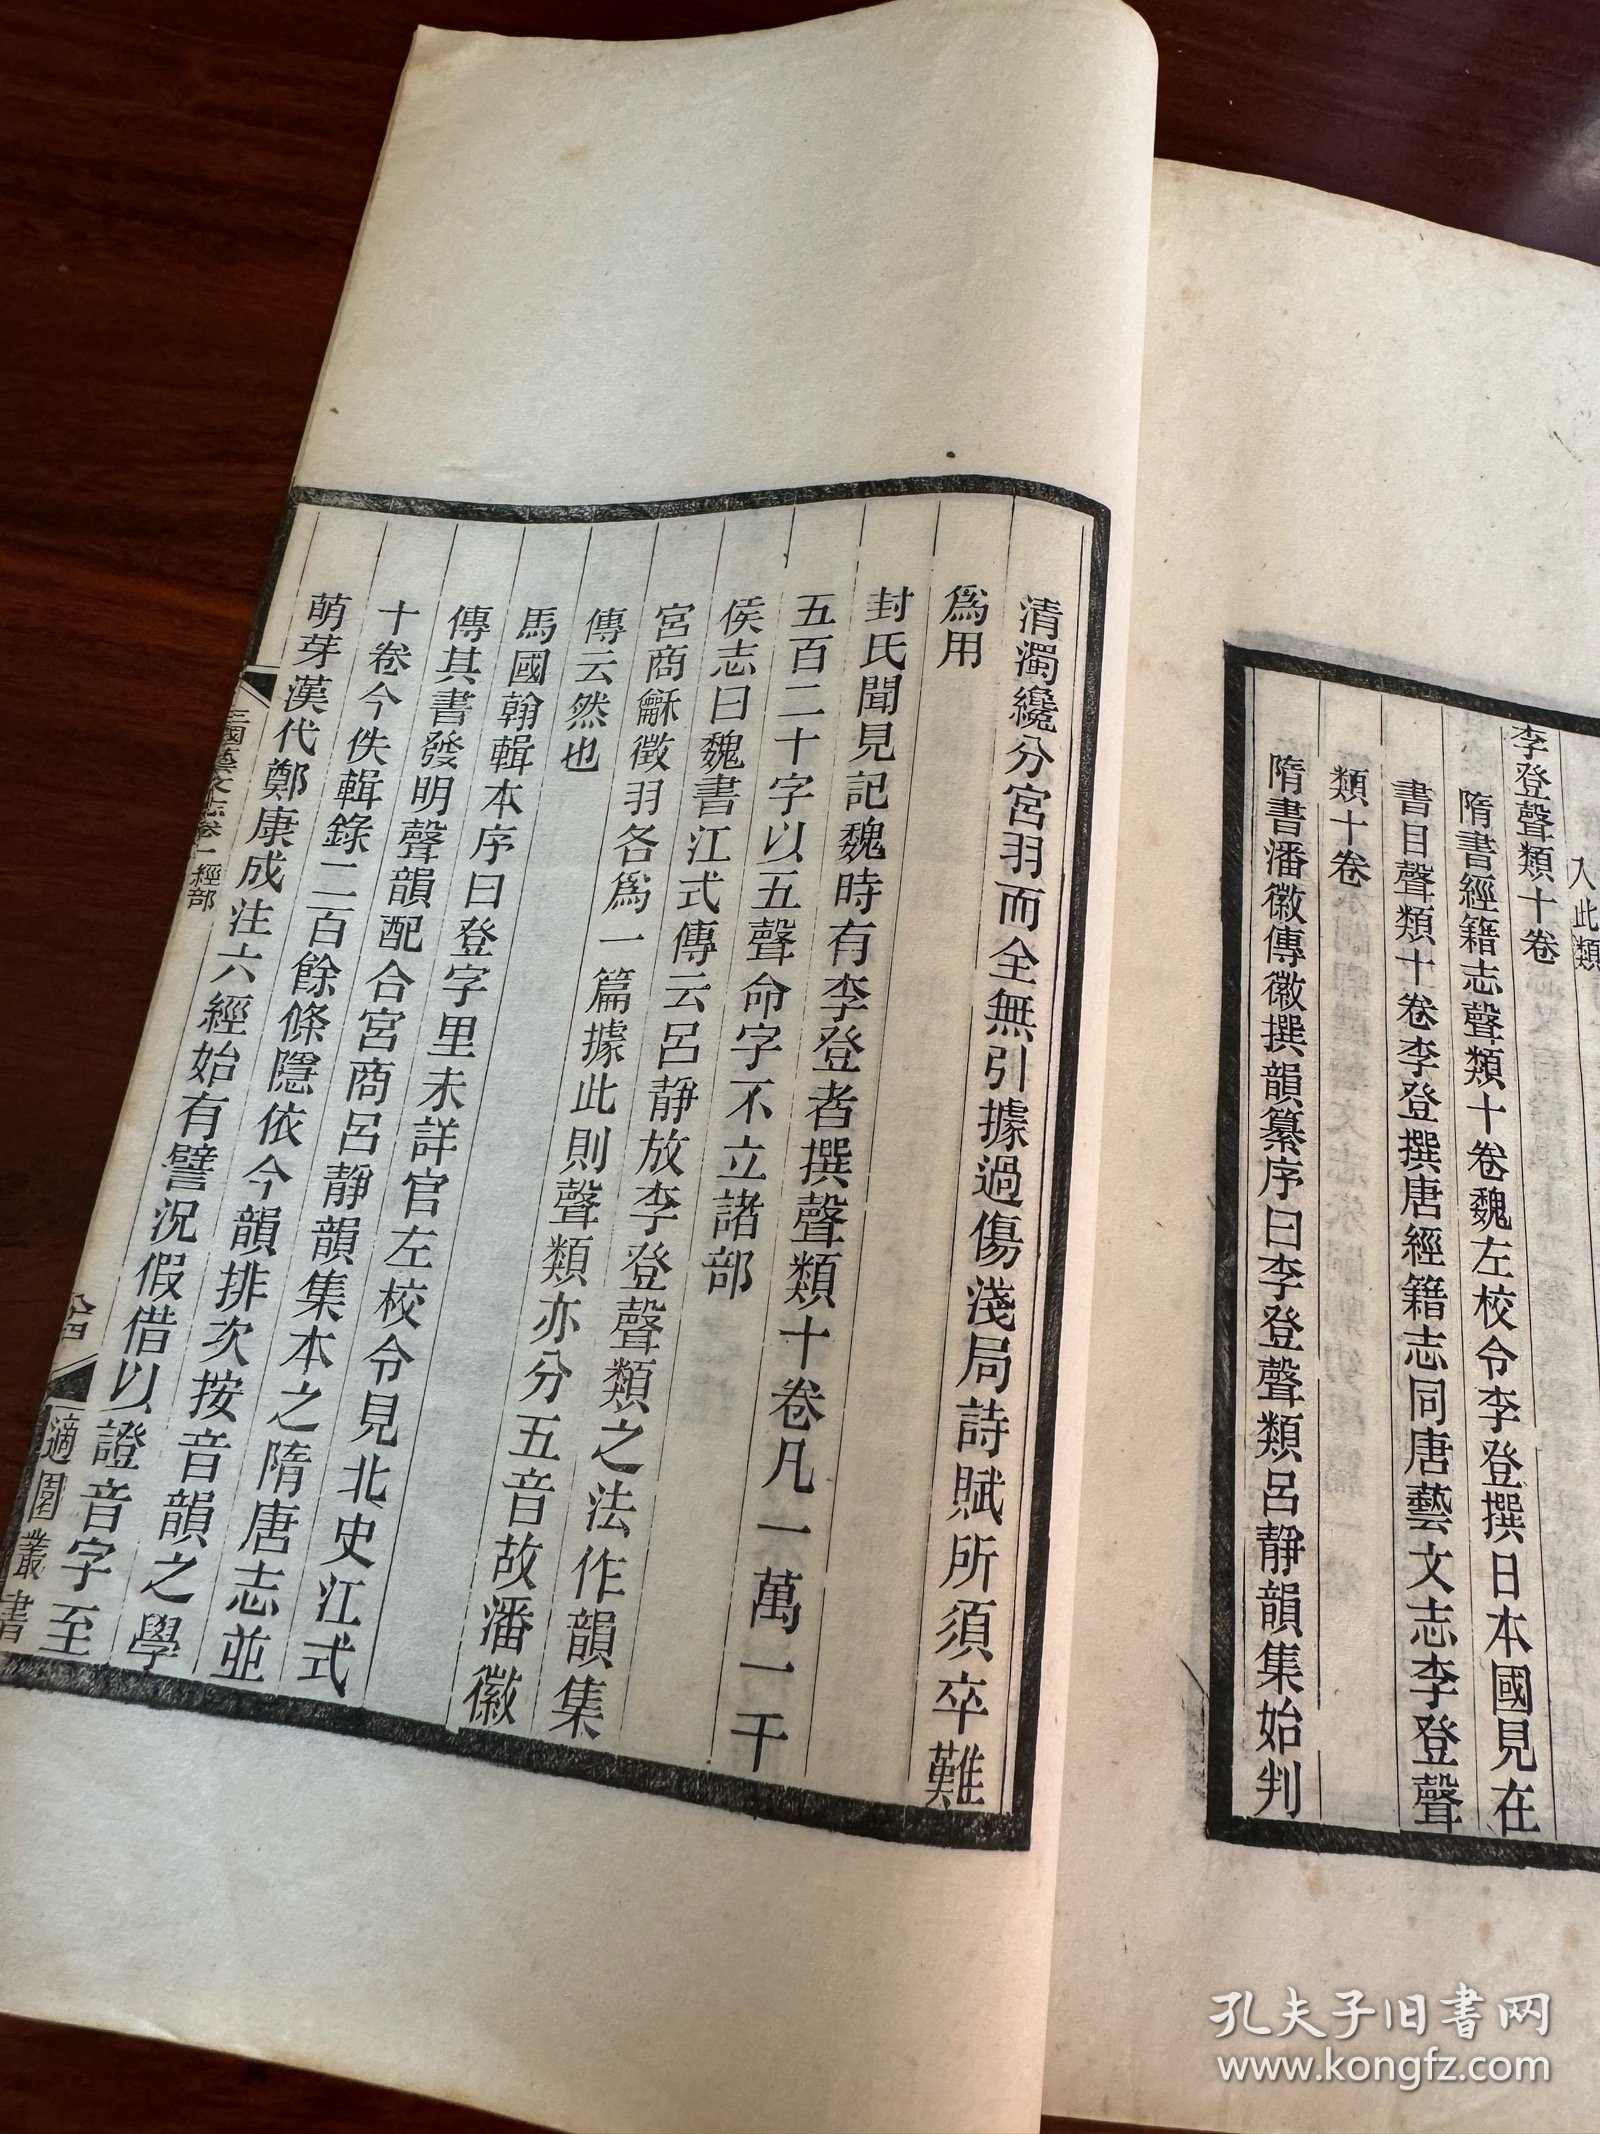 入此類
李登聲類十卷
隋書經籍志聲類十卷魏左校令李登撰日本國見在
書目聲類十卷李登撰唐經籍志同唐藝文志李登聲
類十卷
隋書潘徽傳徽撰韻纂序曰李登聲類呂靜韻集始判
清濁纔分宮羽而全無引據過傷淺局詩賦所須卒難
爲用
封氏聞見記魏時有李登者撰聲類十卷凡一萬一千
五百二十字以五聲命字不立諸部
侯志曰魏書江式傳云呂靜放李登聲類之法作韻集
宮商龢徵羽各爲一篇據此則聲類亦分五音故潘徽
傳云然也
馬國翰輯本序曰登字里未詳官左校令見北史江式
傳其書發明聲韻配合宮商呂靜韻集本之隋唐志並
十卷今佚輯錄二百餘條隱依今韻排次按音韻之學
萌芽漢代鄭康成注六經始有譬況假借以證音字至
三國藝文志卷一經部
適園叢書
孔夫子旧书网
www.kongfz.com